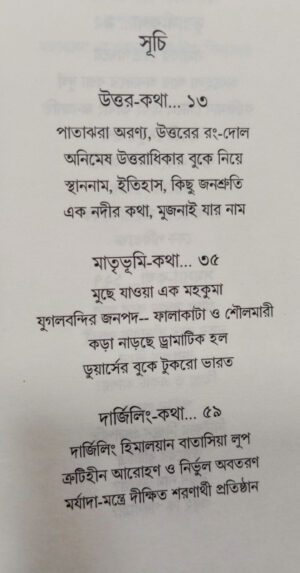 সূচি
উত্তর-কথা... ১৩
পাতাঝরা অরণ্য, উত্তরের রং-দোল
অনিমেষ উত্তরাধিকার বুকে নিয়ে
স্থাননাম, ইতিহাস, কিছু জনশ্রুতি
এক নদীর কথা, মুজনাই যার নাম
মাতৃভূমি-কথা... ৩৫
মুছে যাওয়া এক মহকুমা
যুগলবন্দির জনপদ-- ফালাকাটা ও শৌলমারী
কড়া নাড়ছে ড্রামাটিক হল
ডুয়ার্সের বুকে টুকরো ভারত
দার্জিলিং-কথা... ৫৯
দার্জিলিং হিমালয়ান বাতাসিয়া লুপ
ত্রুটিহীন আরোহণ ও নির্ভুল অবতরণ
মর্যাদা-মন্ত্রে দীক্ষিত শরণার্থী প্রতিষ্ঠান